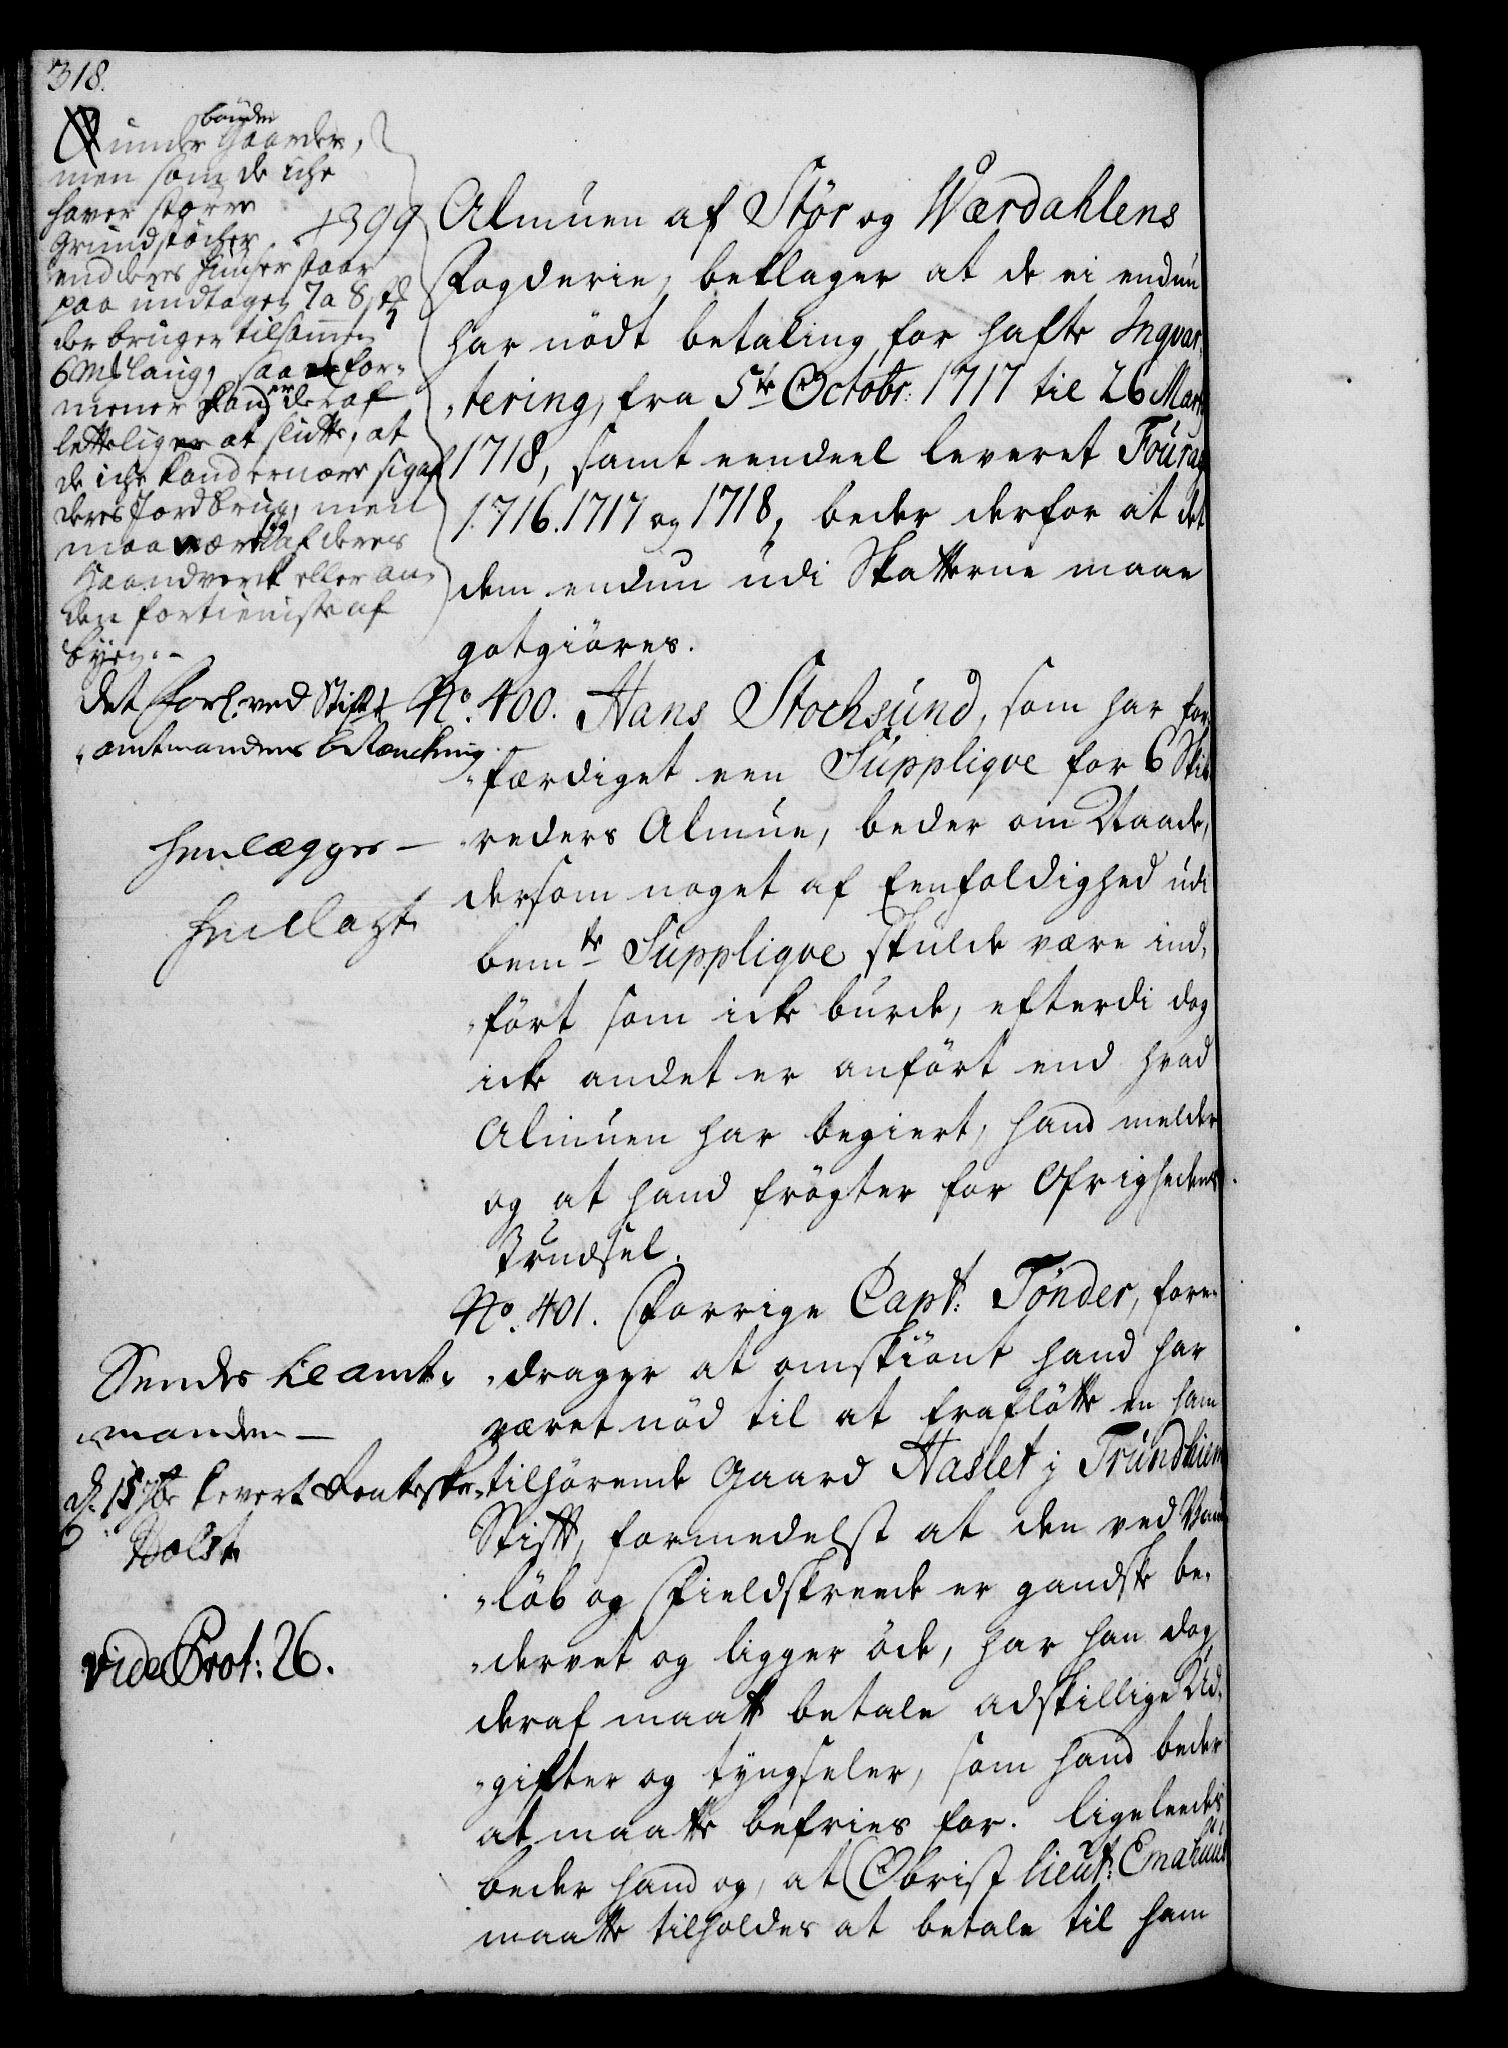 318.
bönder
under Gaarder,
men som de iche
haver større
Grundstöcher,
end deres Huuser staar
paa undtagen 7 a 8 st
der bruger tilsammen
6 Mæ laug, saa for-
mener hand deraf
letteligen at slutte, at
de iche kand ernære sig af
deres Jordbrug, men
maa være af deres
Haandverk eller an-
den fortieniste af
Byen. -
399 Almuen af Stör og Wærdahlens
Fogderie, beklager at de ei endnu
har nödt betaling for hafte Inqvar-
"tering, fra 5te Octobr: 1717 til 26 Marty
1718, samt eendeel leveret Fourag
1716. 1717 og 1718, beder derfor at det
dem endnu udi Skatterne maae
gotgiöres.
det forl: ved Stift
"amtmandens betænkning
No. 400. Hans Stochsund, som har for-
"færdiget een Supplique for 6 Skib-
"reders Almue, beder om Naade,
dersom noget af Eenfoldighed udi
bemte Supplique skulde være ind-
"fört som icke burde, efterdi dog
icke andet er anfört end hvad
Almuen har begiert, hand melder
og at hand frögter for Öfrighedens
Trudsel.
henlægges -
henlagt
No. 401. Forrige Capt: Tönder, fore-
"drager at omskiönt hand har
været nöd til at fraflötte en ham
"tilhörende Gaard Haslet i Trundhiem
Stift, formedelst at den ved Vand-
"löb og Fieldskreede er gandske be-
"dervet og ligger öde, har han dog
deraf maatt betale adskillige Ud-
"gifter og tyngseler, som hand beder
at maatte befries for. ligeleedes
beder hand og, at Obrist lieut: Emahuus
maatte tilholdes at betale til ham
Sendes til amt-
"manden -
d. 15 7br levert
Holst
vide Prot: 26.